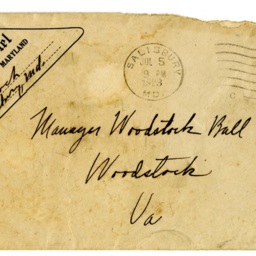 MARYLAND
SALISBURY
JUL 5
9 PM
MD.
Manager Woodstock Ball
Woodstock
Va